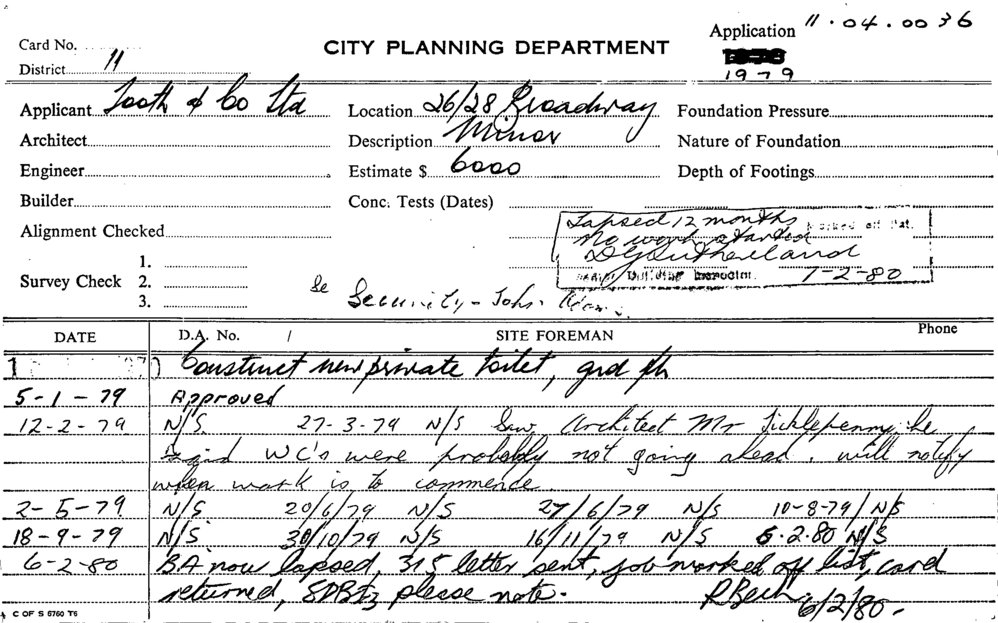 Application 11.04.0036
Card No.
CITY PLANNING DEPARTMENT
District 11
1979
Applicant Tooth & Co Ltd Location 26/28 Broadway Foundation Pressure
Architect Description Minor Nature of Foundation
Engineer Estimate $ 6000 Depth of Footings
Builder Conc. Tests (Dates)
Alignment Checked
Lapsed 12 months
No work started
D Sutherland
Building Inspector. 1-2-80
Survey Check 1.
2.
3.
Se Security - John
DATE D.A. No. / SITE FOREMAN Phone
Construct new private toilet, grd flr
5-1-79 Approved
12-2-79 N/S. 27-3-79 N/S Saw Architect Mr Ticklepenny he
said WC's were probably not going ahead. will notify
when work is to commence.
2-5-79 N/S 20/6/79 N/S 27/6/79 N/S 10-8-79/N/S
18-9-79 N/S. 30/10/79 N/S 16/11/79 N/S 5.2.80 N/S
6-2-80 BA now lapsed, 315 letter sent, job marked off list, card
returned, please note. 6/2/80.
C OF S 6760 T6